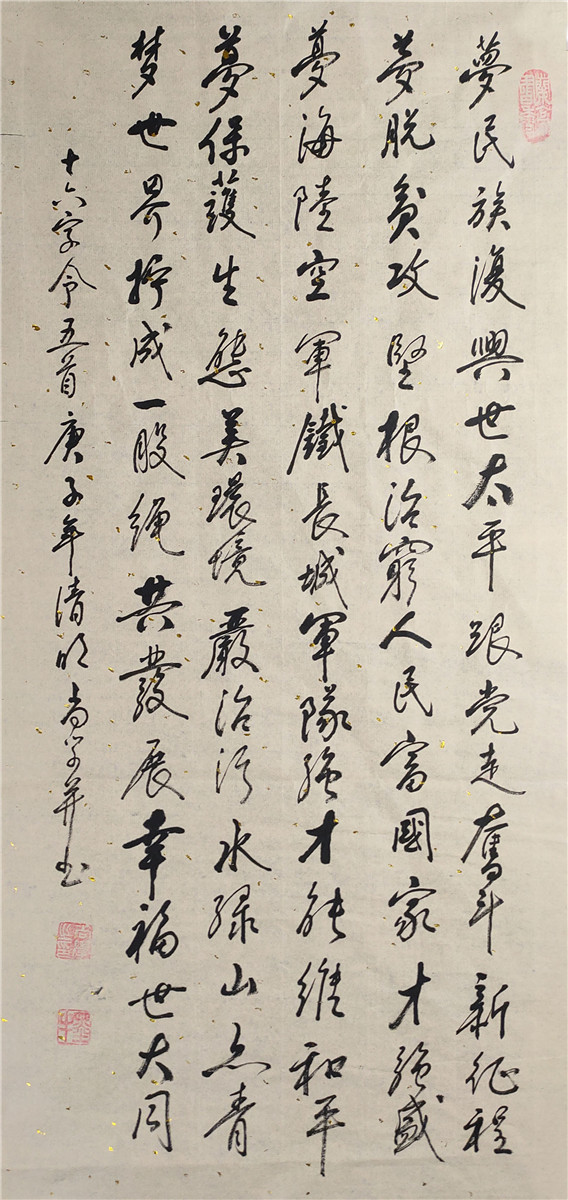 夢民族復興世太平跟党走奮斗新征程
夢脱貧攻堅根治窮人民富國家才強盛
夢海陸空軍鐵長城軍隊強才能維和平
夢保護生態美環境嚴治污水绿山亦青
梦世界拧成一股绳共發展幸福世大同
十六字令五首庚子年清明尚学并书